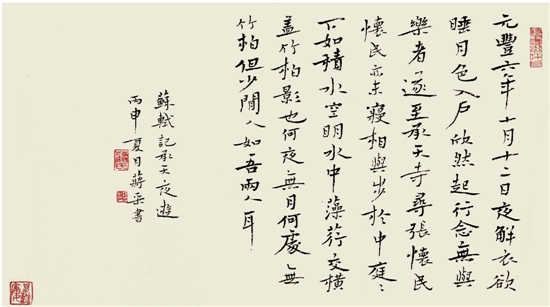 元豐六年十月十二日夜解衣欲
睡月色入戶欣然起行念無與
樂者遂至承天寺尋張懷民
懷民亦未寢相與步於中庭〻
下如積水空明水中藻荇交橫
蓋竹柏影也何夜無月何處無
竹柏但少閒人如吾兩人耳
蘇軾記承天夜遊
丙申夏日蔣采書